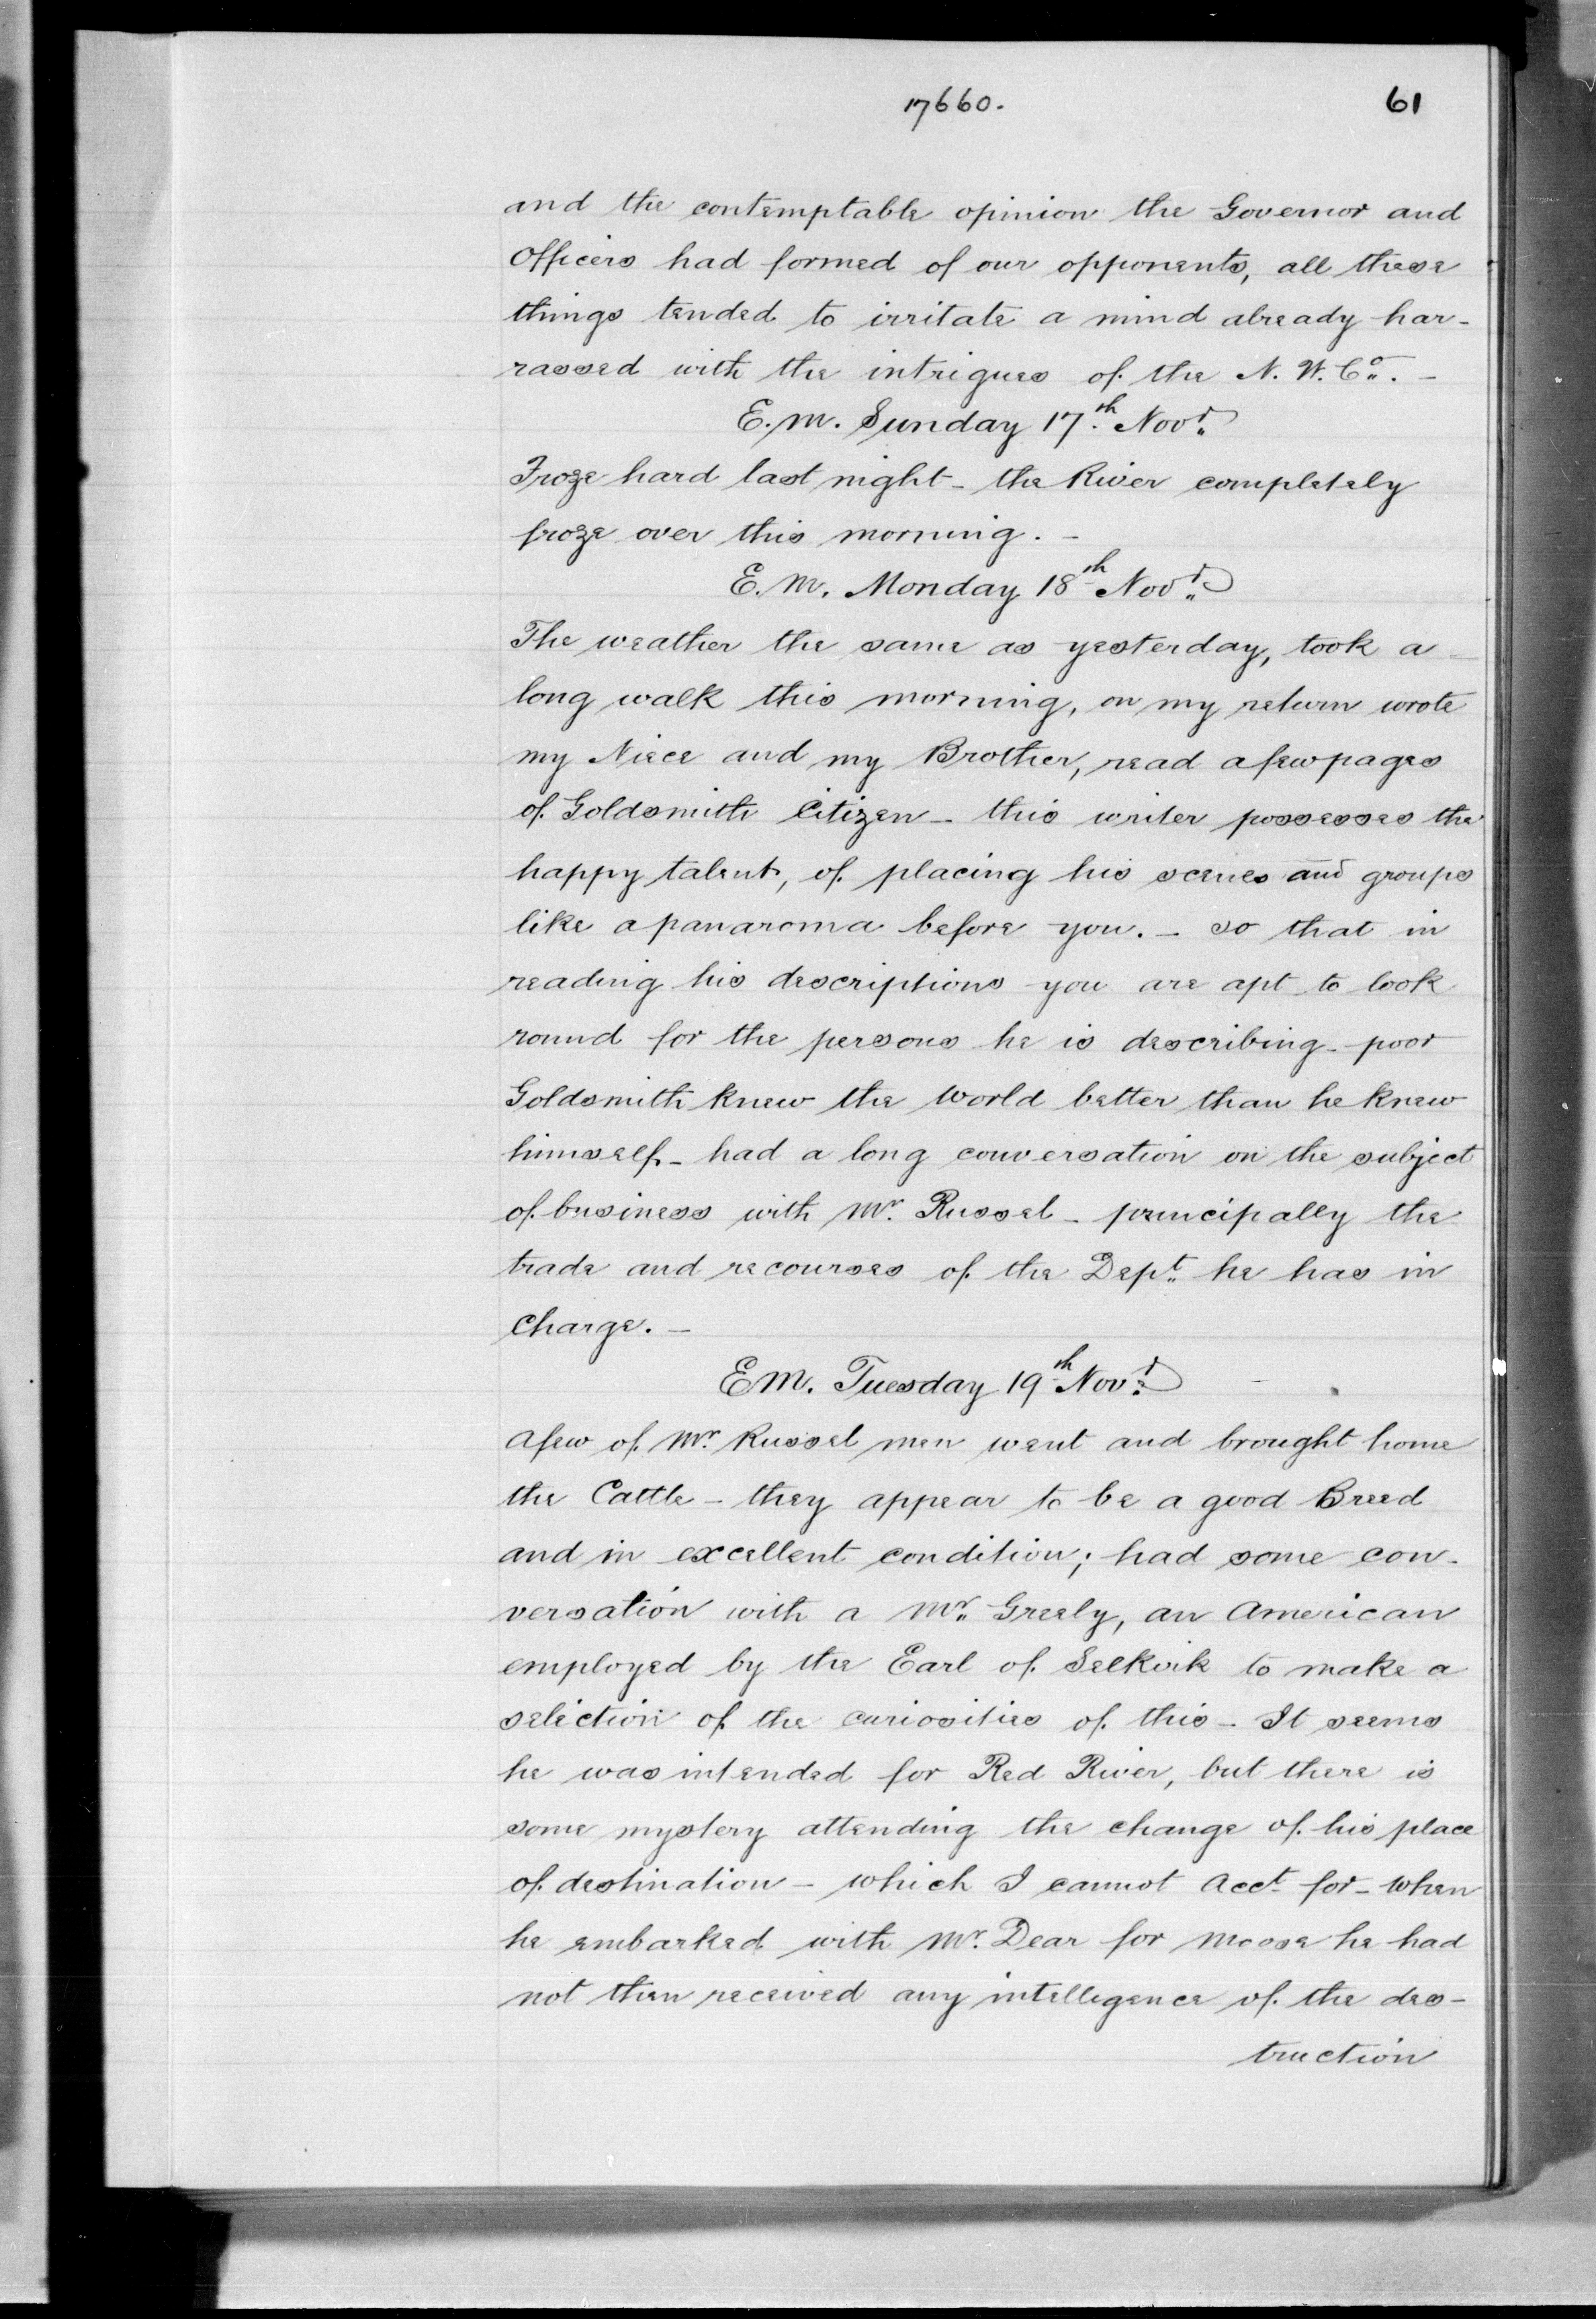 17660.
61
and the contemptable opinion the Governor and
Officers had formed of our opponents, all these
things tended to irritate a mind already har-
rassed with the intrigues of the N. W. Co. -
E. M. Sunday 17th Novr
Froze hard last night - the River completely
froze over this morning. -
E. M. Monday 18th Novr
The weather the same as yesterday, took a -
long walk this morning, on my return wrote
my Niece and my Brother, read a few pages
of Goldsmith Citizen - this writer possesses the
happy talent, of placing his scenes and groups
like a panaroma before you. - so that in
reading his descriptions you are apt to look
round for the persons he is describing - poor
Goldsmith knew the world better than he knew
himself - had a long conversation on the subject
of business with Mr. Russel - principally the
trade and recourses of the Dept he has in
charge. -
E M. Tuesday 19th Novr -
A few of Mr. Russel men went and brought home
the Cattle - they appear to be a good Breed
and in excellent condition; had some con-
versation with a Mr Greely, an American
employed by the Earl of Selkirk to make a
selection of the curiosities of this - It seems
he was intended for Red River, but there is
some mystery attending the change of his place
of destination - which I cannot Acct for - when
he embarked with Mr. Dear for Moose he had
not then received any intelligence of the des-
truction